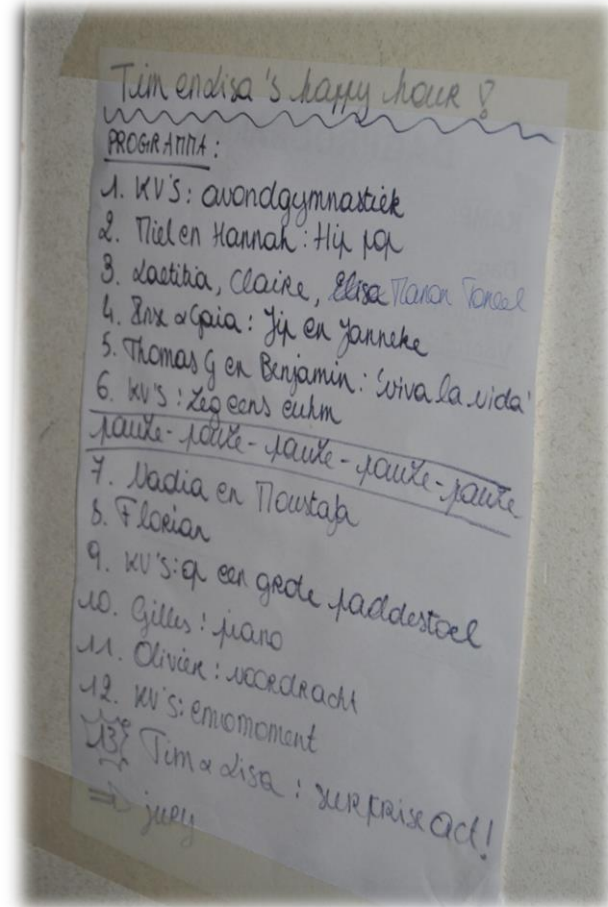 Tim en Lisa's happy hour !
PROGRAMMA:
1. KV'S: avondgymnastiek
2. Miel en Hannah: Hip pop
3. Laetitia, Claire, Elisa Manon Toneel
4. & Gaia: Jip en Janneke
5. Thomas G en Benjamin: 'viva la vida'
6. KV'S: Zeg eens euhm
pauze-pauze-pauze-pauze-pauze
7. Nadia en Moustafa
8. Florian
9. KV'S: op een grote paddestoel
10. Gilles: piano
11. Olivier: voordracht
12. KV'S: emomoment
13 Tim & Lisa: surprise act!
⇒ jury